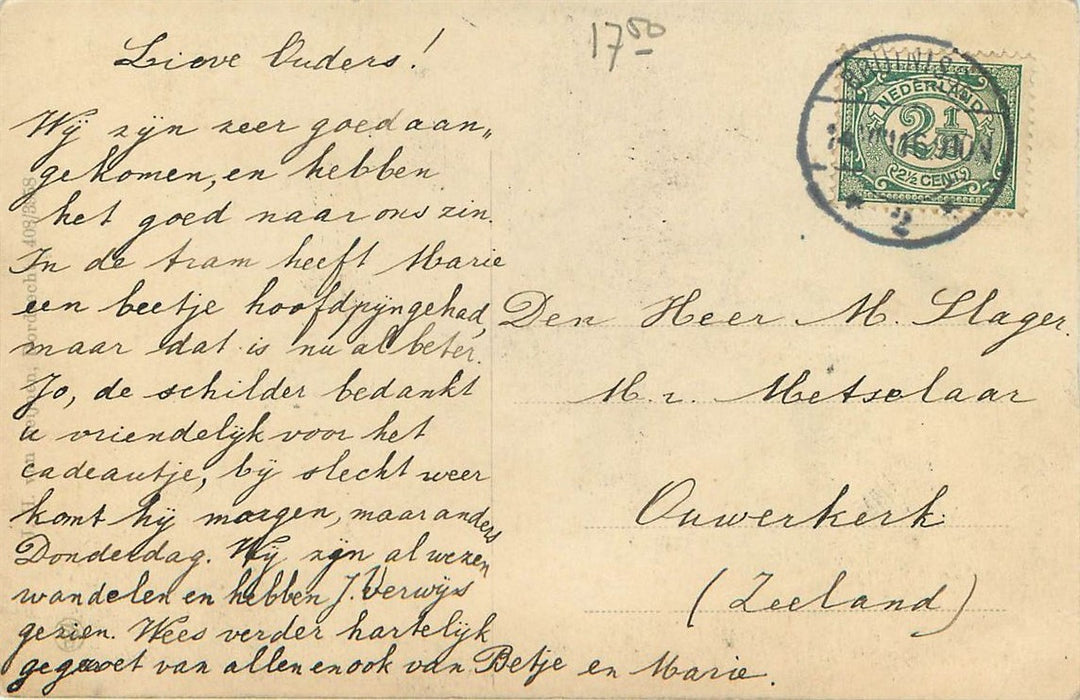 17 50
Lieve Ouders!
Wij zijn zeer goed aan„
gekomen, en hebben
het goed naar ons zin.
In de tram heeft Marie
een beetje hoofdpijn gehad,
maar dat is nu al beter.
Jo, de schilder bedankt
u vriendelijk voor het
cadeautje, bij slecht weer
komt hij morgen, maar anders
Donderdag. Wij zijn al wezen
wandelen en hebben J. Verwijs
gezien. Wees verder hartelijk
gegroet van allen en ook van Betje en Marie.
BRUINIS
16.9-10N
2
NEDERLAND
2½
2½ CENT
Den Heer M. Slager.
M. z. Metselaar
Ouwerkerk
(Zeeland)
Dordrecht 408/3858